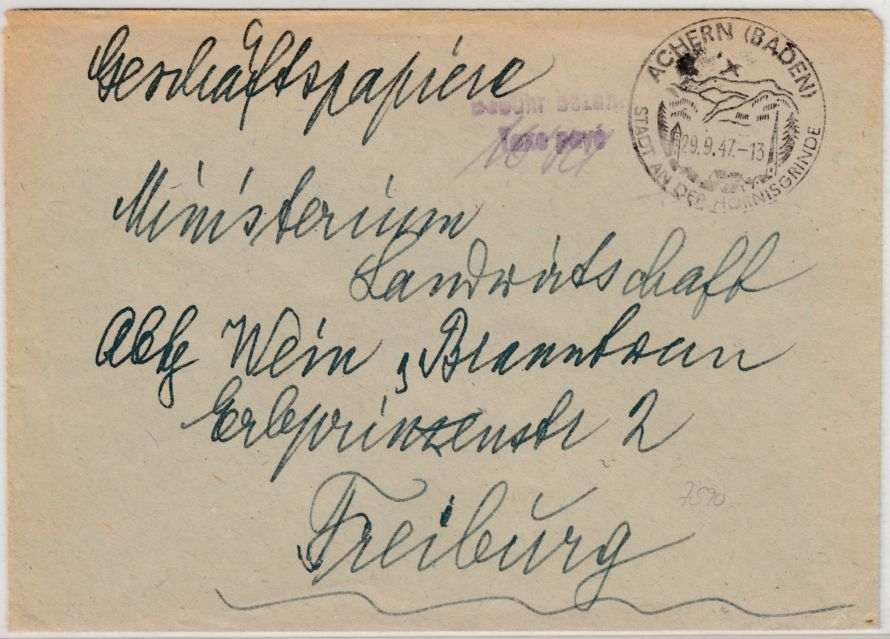 Geschäftspapiere
Gebühr bezahlt
Taxe payé
ACHERN (BADEN)
29.9.47.-13
STADT AN DER HORNISGRINDE
Ministerium
Landwirtschaft
Abtg Wein, Branntwein
Erbprinzenstr 2
Freiburg
7590